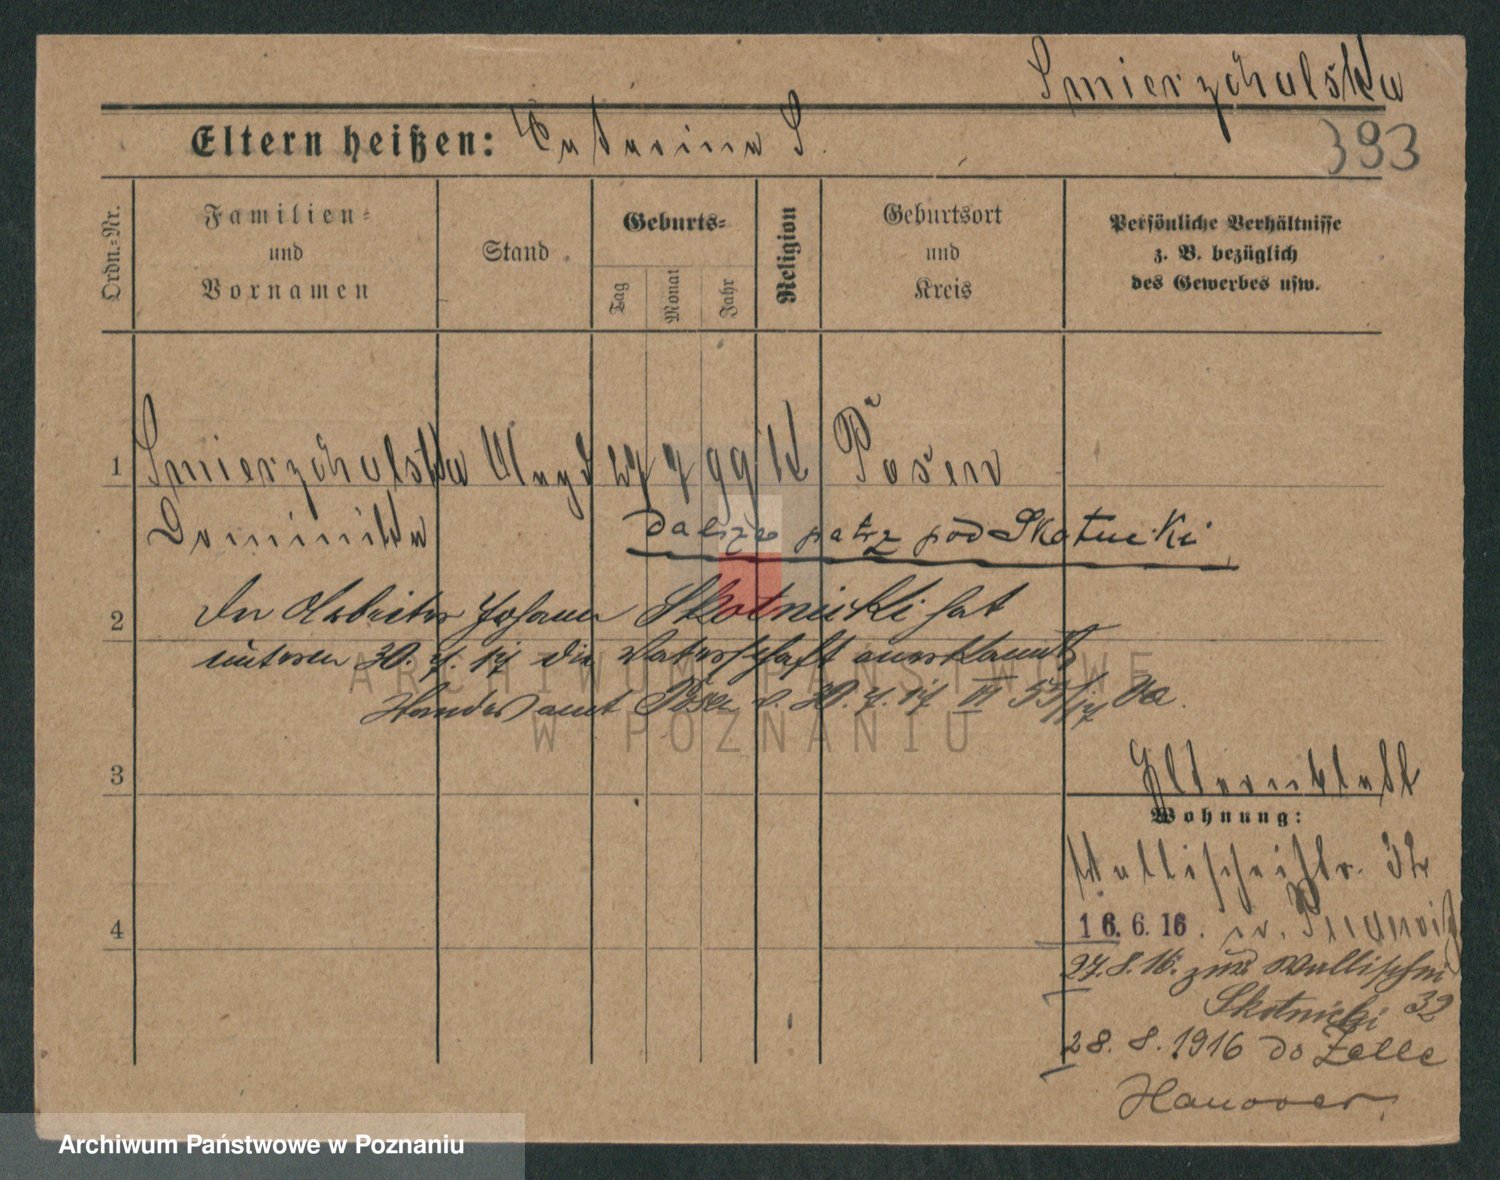 Smierzchalska
Eltern heißen: Katarina S.
393
Ordn.-Nr.
Familien-
und
Vornamen
Stand
Geburts-
Tag
Monat
Jahr
Religion
Geburtsort
und
Kreis
Persönliche Verhältnisse
z. B. bezüglich
des Gewerbes usw.
1 Smierzchalska Magd 27 7 99 K Posen
Dominika
dalsze patrz pod Skotnicki
2 Der Arbeiter Johann Skotnicki hat
unterm 30. 7. 17 die Vaterschaft anerkannt
Standesamt Posen v. 30. 7. 17 VI 55/17
3
Elternblatt
Wohnung:
Wallischeistr. 32
4
16. 6. 16.
27. 8. 16. zur Wallischei
Skotnicki 32
28. 8. 1916 do Zelle
Hanover.
ARCHIWUM PAŃSTWOWE
W POZNANIU
Archiwum Państwowe w Poznaniu